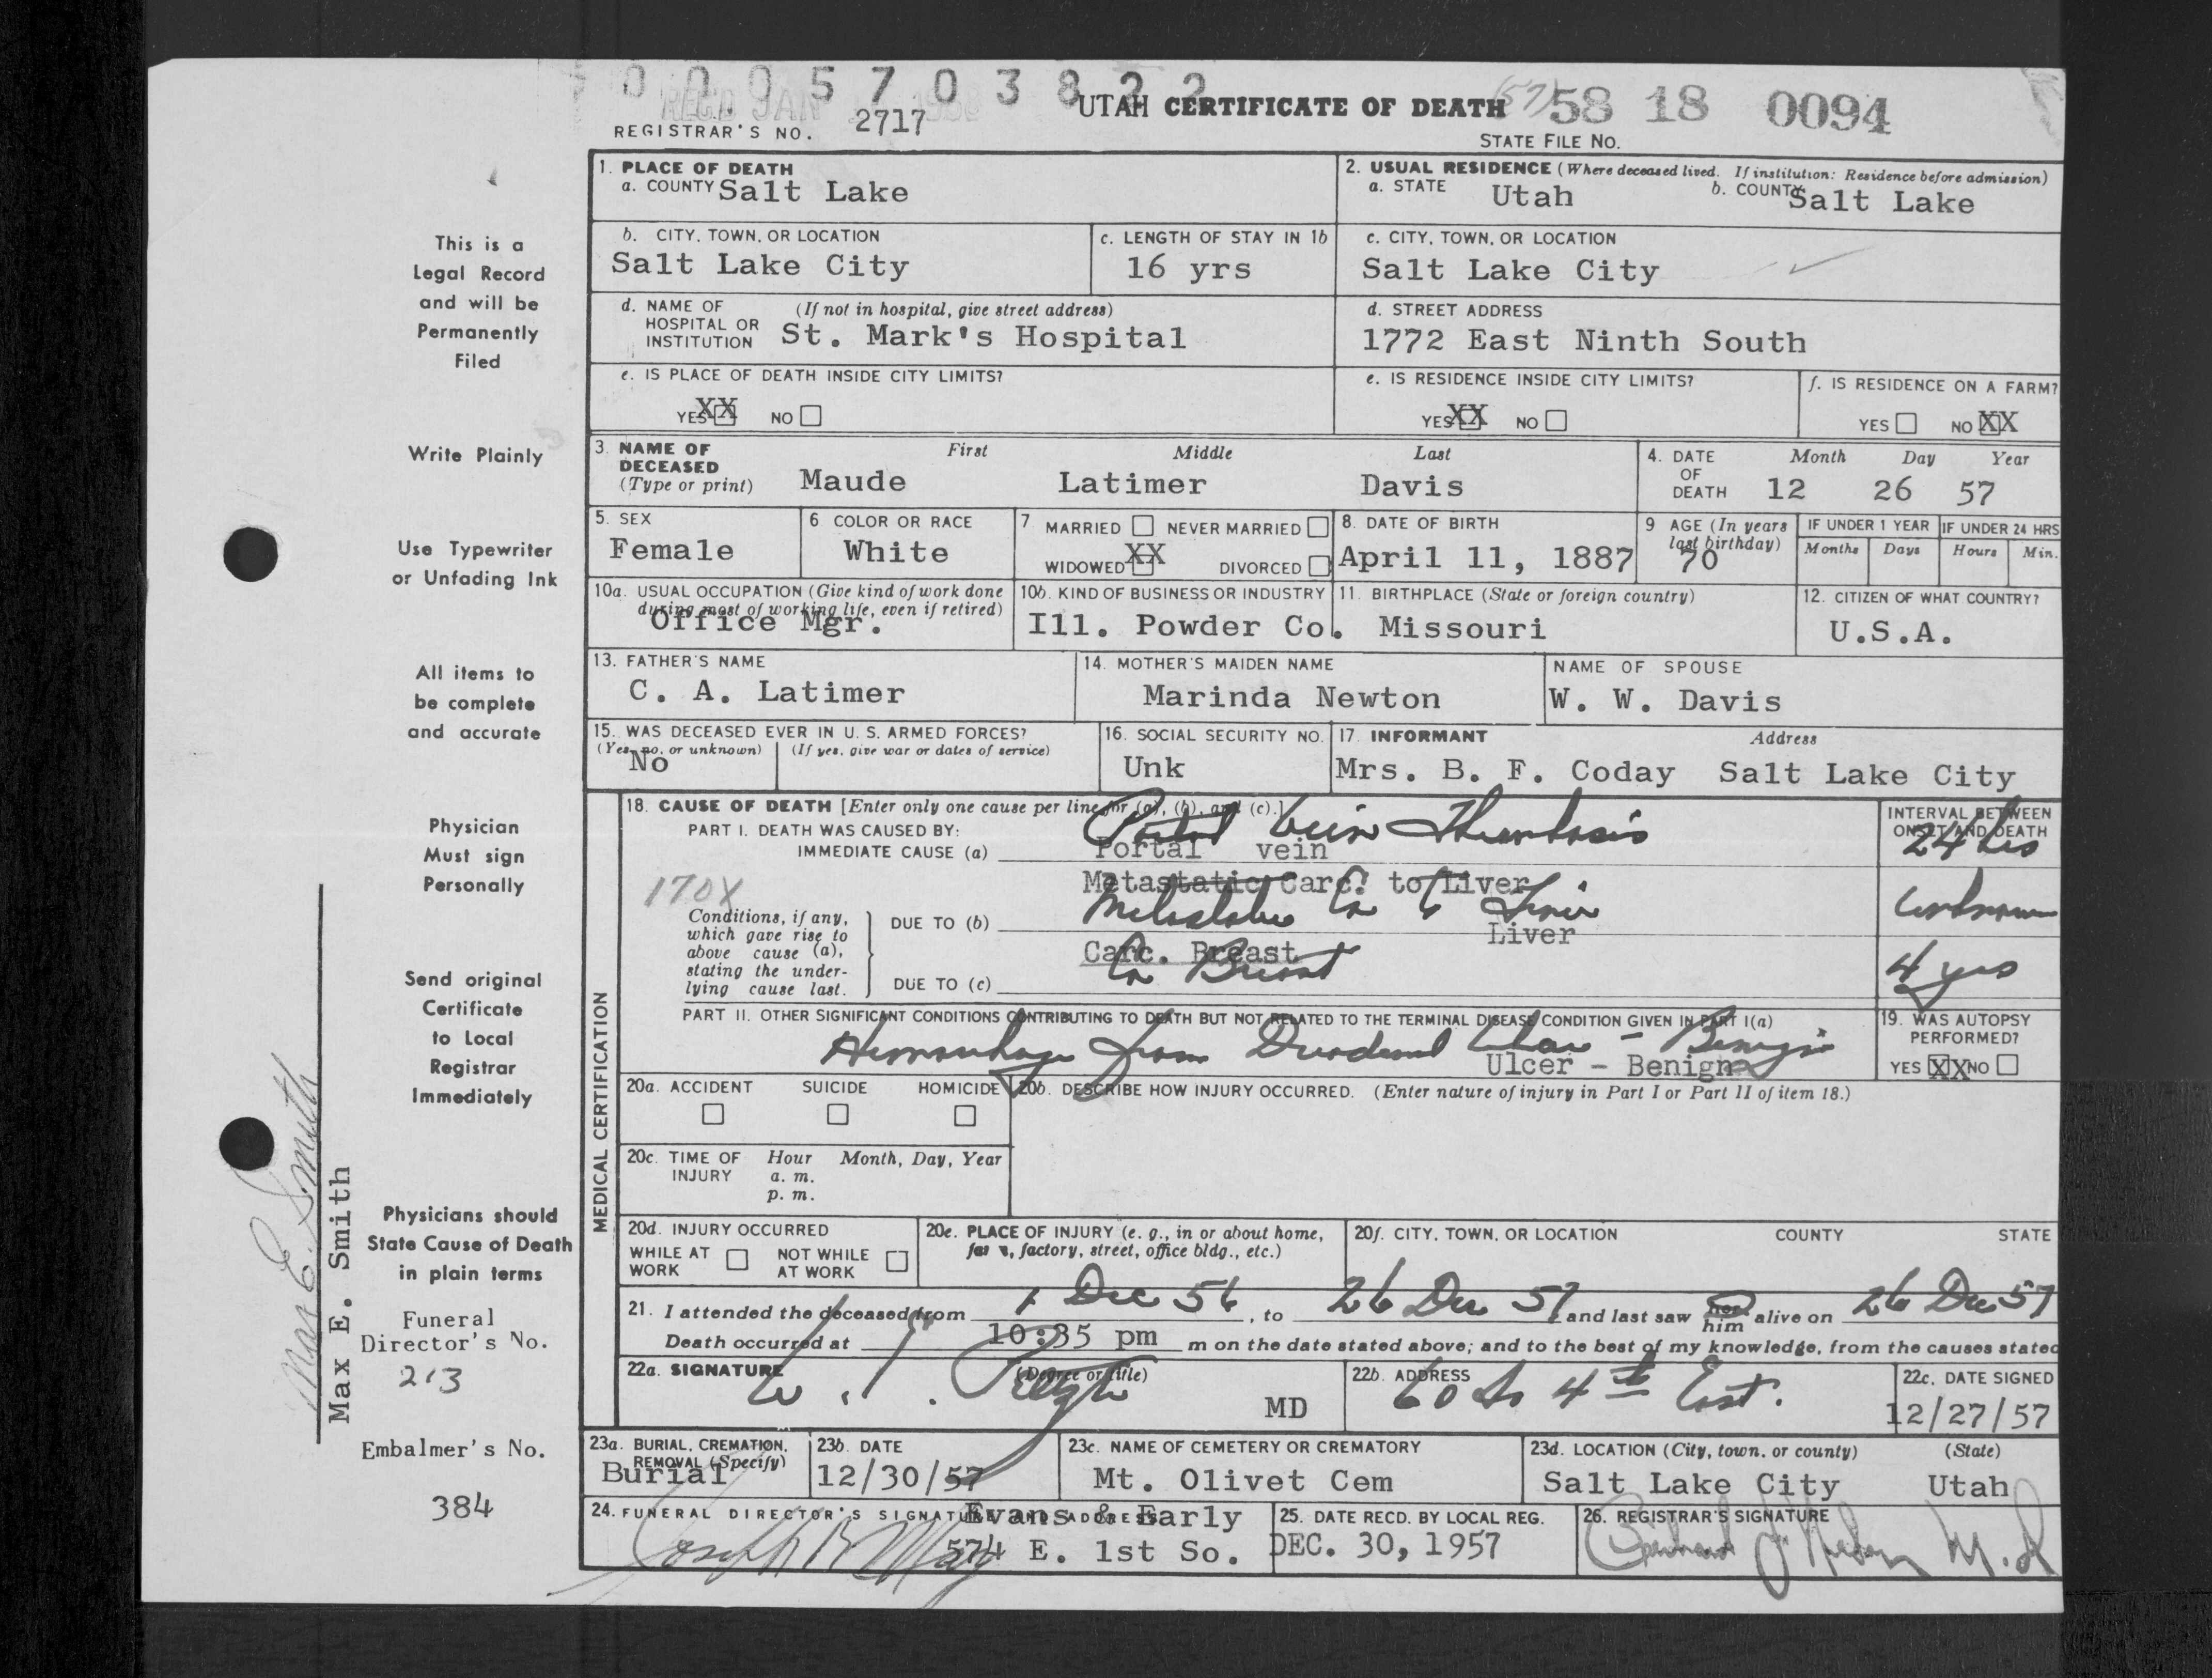 0 0 9 5 7 0 3 8 2 2
REC'D JAN
UTAH CERTIFICATE OF DEATH (57) 58 18 0094
REGISTRAR'S NO. 2717
STATE FILE NO.
This is a
Legal Record
and will be
Permanently
Filed
Write Plainly
Use Typewriter
or Unfading Ink
All items to
be complete
and accurate
Physician
Must sign
Personally
Send original
Certificate
to Local
Registrar
Immediately
Physicians should
State Cause of Death
in plain terms
Funeral
Director's No.
213
Embalmer's No.
384
Max E. Smith
Max E. Smith
1. PLACE OF DEATH
a. COUNTY Salt Lake
2. USUAL RESIDENCE (Where deceased lived. If institution: Residence before admission)
a. STATE Utah b. COUNTY Salt Lake
b. CITY, TOWN, OR LOCATION
Salt Lake City
c. LENGTH OF STAY IN 1b
16 yrs
c. CITY, TOWN, OR LOCATION
Salt Lake City
d. NAME OF HOSPITAL OR INSTITUTION (If not in hospital, give street address)
St. Mark's Hospital
d. STREET ADDRESS
1772 East Ninth South
e. IS PLACE OF DEATH INSIDE CITY LIMITS?
YES XX NO
e. IS RESIDENCE INSIDE CITY LIMITS?
YES XX NO
f. IS RESIDENCE ON A FARM?
YES NO XX
3. NAME OF DECEASED (Type or print) First Middle Last
Maude Latimer Davis
4. DATE OF DEATH Month Day Year
12 26 57
5. SEX
Female
6 COLOR OR RACE
White
7 MARRIED NEVER MARRIED
WIDOWED XX DIVORCED
8. DATE OF BIRTH
April 11, 1887
9 AGE (In years last birthday)
70
IF UNDER 1 YEAR IF UNDER 24 HRS
Months Days Hours Min.
10a. USUAL OCCUPATION (Give kind of work done during most of working life, even if retired)
Office Mgr.
10b. KIND OF BUSINESS OR INDUSTRY
Ill. Powder Co.
11. BIRTHPLACE (State or foreign country)
Missouri
12. CITIZEN OF WHAT COUNTRY?
U.S.A.
13. FATHER'S NAME
C. A. Latimer
14. MOTHER'S MAIDEN NAME
Marinda Newton
NAME OF SPOUSE
W. W. Davis
15. WAS DECEASED EVER IN U. S. ARMED FORCES?
(Yes, no, or unknown) (If yes, give war or dates of service)
No
16. SOCIAL SECURITY NO.
Unk
17. INFORMANT Address
Mrs. B. F. Coday Salt Lake City
MEDICAL CERTIFICATION
18. CAUSE OF DEATH [Enter only one cause per line for (a), (b), and (c).]
PART I. DEATH WAS CAUSED BY:
IMMEDIATE CAUSE (a) Portal vein Thrombosis
Portal vein
INTERVAL BETWEEN ONSET AND DEATH
24 hrs
170X
Metastatic Carc. to Liver
Conditions, if any, which gave rise to above cause (a), stating the underlying cause last.
DUE TO (b) Metastatic Ca to Liver
Liver
Unknown
Carc. Breast
DUE TO (c) Ca Breast
4 yrs
PART II. OTHER SIGNIFICANT CONDITIONS CONTRIBUTING TO DEATH BUT NOT RELATED TO THE TERMINAL DISEASE CONDITION GIVEN IN PART I(a)
Hemorrhage from Duodenal Ulcer - Benign
Ulcer - Benign
19. WAS AUTOPSY PERFORMED?
YES XX NO
20a. ACCIDENT SUICIDE HOMICIDE
20b. DESCRIBE HOW INJURY OCCURRED. (Enter nature of injury in Part I or Part II of item 18.)
20c. TIME OF INJURY Hour Month, Day, Year
a. m.
p. m.
20d. INJURY OCCURRED
WHILE AT WORK NOT WHILE AT WORK
20e. PLACE OF INJURY (e. g., in or about home, farm, factory, street, office bldg., etc.)
20f. CITY, TOWN, OR LOCATION COUNTY STATE
21. I attended the deceased from 1 Dec 56, to 26 Dec 57 and last saw her him alive on 26 Dec 57
Death occurred at 10:35 pm m on the date stated above; and to the best of my knowledge, from the causes stated
22a. SIGNATURE (Degree or title)
MD
22b. ADDRESS
60 So 4th East.
22c. DATE SIGNED
12/27/57
23a. BURIAL, CREMATION, REMOVAL (Specify)
Burial
23b. DATE
12/30/57
23c. NAME OF CEMETERY OR CREMATORY
Mt. Olivet Cem
23d. LOCATION (City, town, or county) (State)
Salt Lake City Utah
24. FUNERAL DIRECTOR'S SIGNATURE AND ADDRESS
Evans & Early
574 E. 1st So.
25. DATE RECD. BY LOCAL REG.
DEC. 30, 1957
26. REGISTRAR'S SIGNATURE
M.D